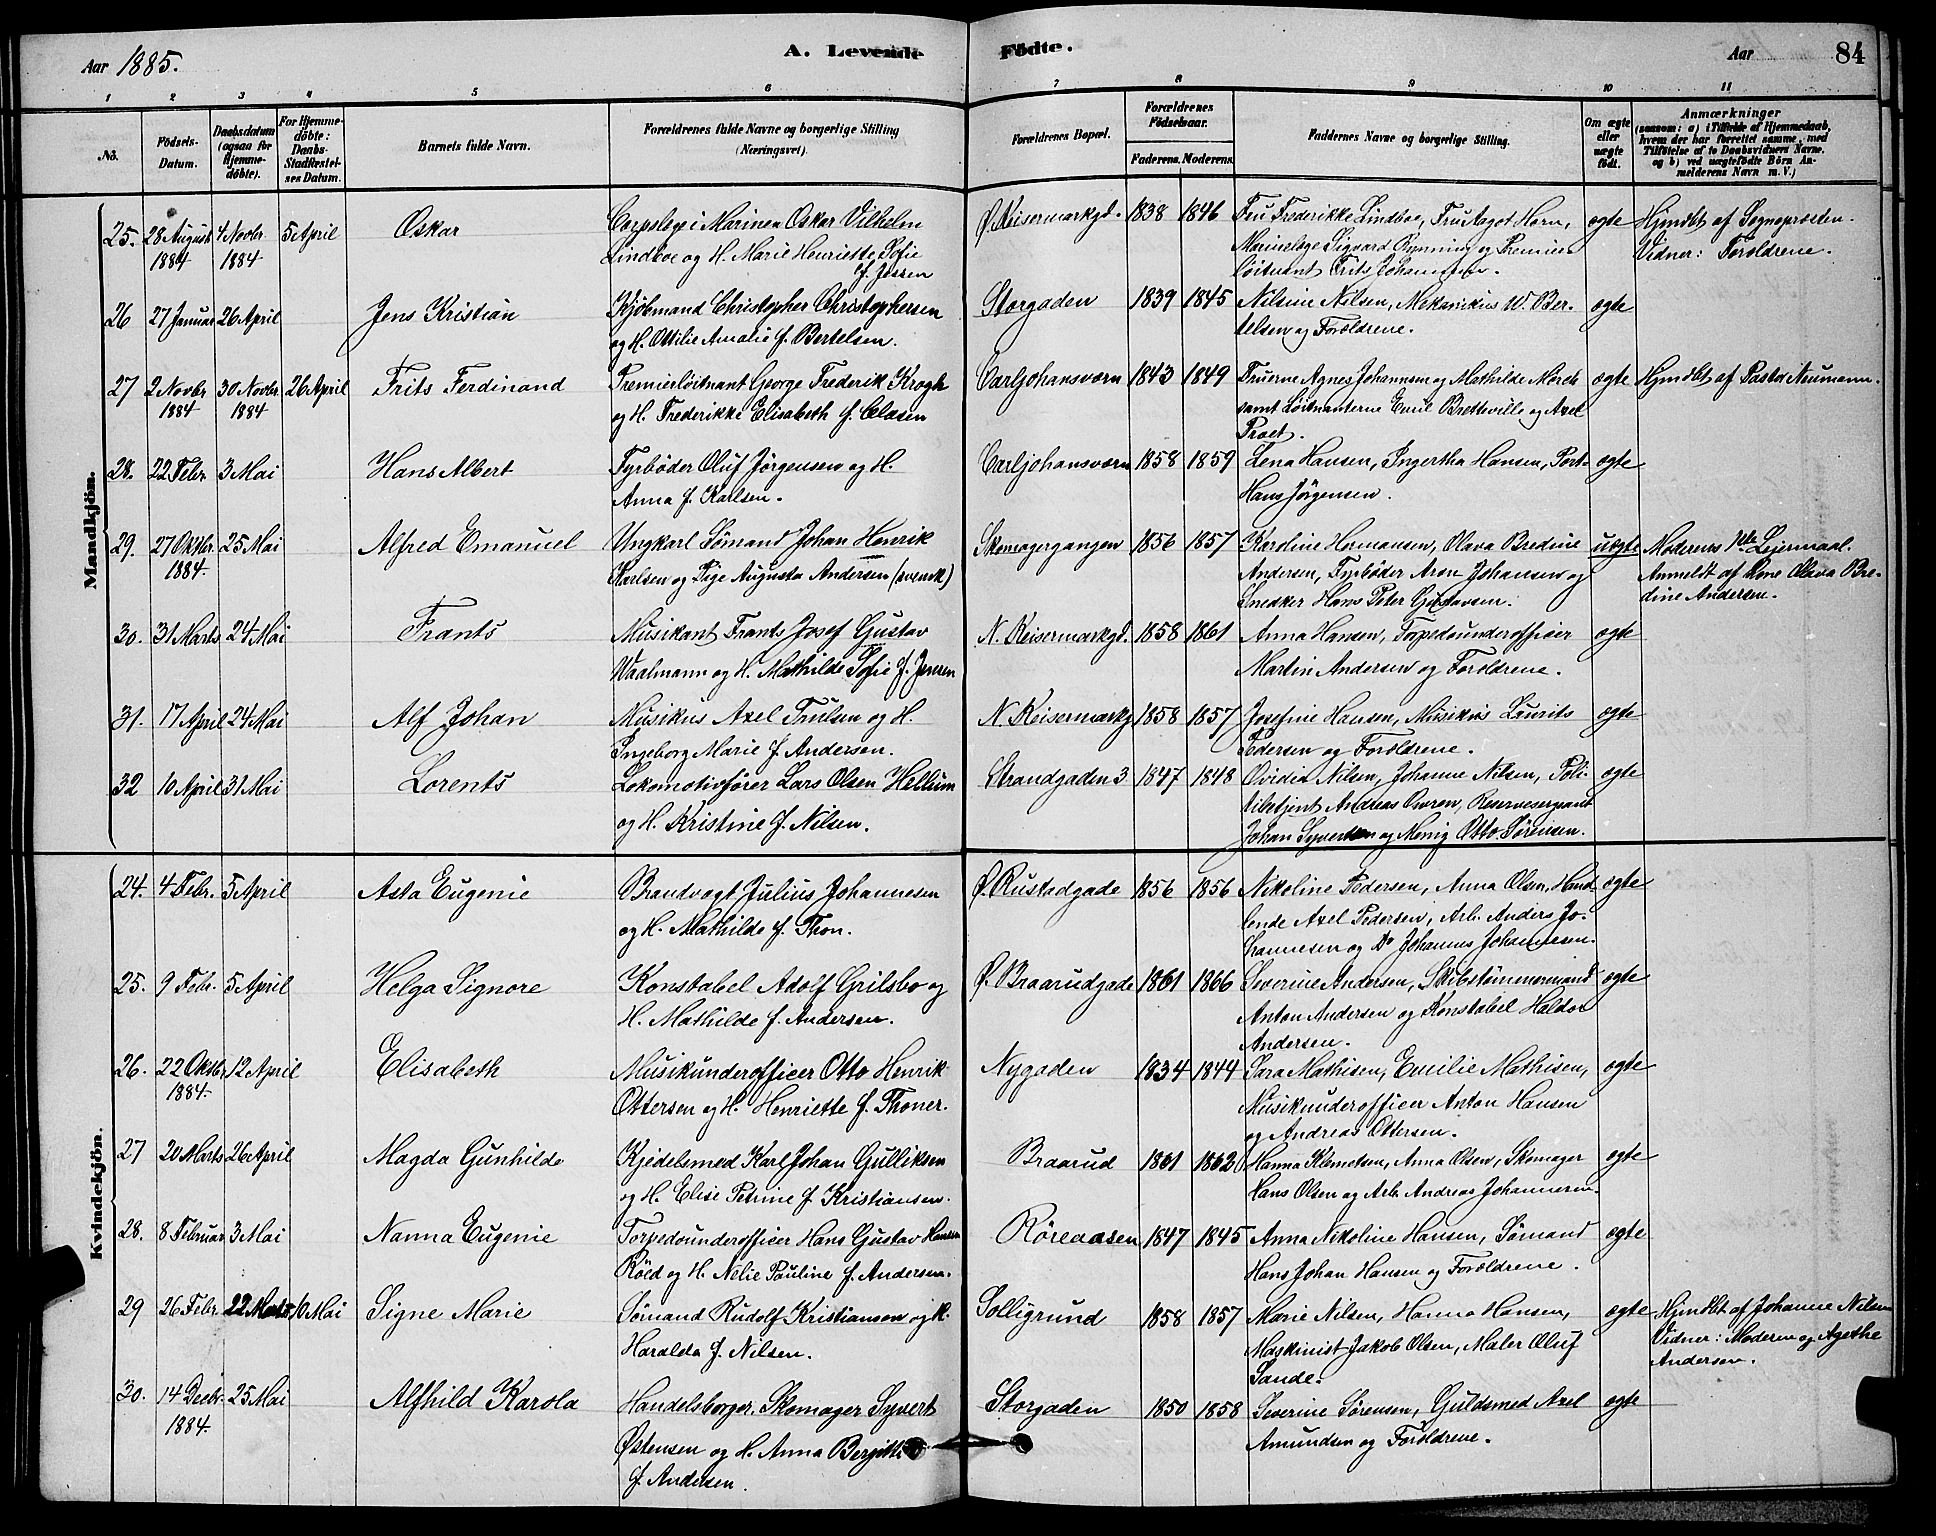 Aar 1885.
A. Levende
Fødte.
Aar
84
1 2 3 4 5 6 7 8 9 10 11
No.
Fødsels-Datum.
Daabsdatum (ogsaa for Hjemme-døbte).
For Hjemme-døbte: Daabs-Stadfæstel-ses Datum.
Barnets fulde Navn.
Forældrenes fulde Navne og borgerlige Stilling (Næringsvei).
Forældrenes Bopæl.
Forældrenes Fødselsaar.
Faderens. Moderens.
Faddernes Navne og borgerlige Stilling.
Om ægte eller uægte født.
Anmærkninger
(saasom: a) i Tilfælde af Hjemmedaab, hvem der har forrettet samme, med Tilføielse af to Daabsvidners Navne, og b) ved uægtefødte Børn An-melderens Navn m. V.)
Mandkjön.
25. 28 August 4 Novbr. 5 April Oskar Corpslæge i Marinen Oskar Vilhelm Ø. Keisermarkgd. 1838 1846 Fru Frederikke Lindboe, Fru Aagot Horn, ægte Hjmdbt af Sognepræsten.
1884 1884 Lindboe og H. Marie Henriette Sofie Marinelæge Sigvard Rynning og Premier- Vidner: Forældrene.
f. Jessen løitnant Frits Johannsen.
26 27 Januar 26 April Jens Kristian Kjøbmand Christopher Christophersen Storgaden 1839 1845 Nilsine Nilsen, Mekanikus W. Ber- ægte
og H. Ottilie Amalie f. Bertelsen. telsen og Forældrene.
27 2 Novbr 30 Novbr. 26 April Frits Ferdinand Premierløitnant George Frederik Krogh Carljohansværn 1843 1849 Fruerne Agnes Johannsen og Mathilde Mørch ægte Hjmdbt af Pastor Neumann.
1884 1884 og H. Frederikke Elisabeth f. Clasen samt Løitnanterne Emil Bretteville og Axel
28. 22 Febr. 3 Mai Hans Albert Fyrbøder Oluf Jørgensen og H. Carljohansværn 1858 1859 Lena Hansen, Ingertha Hansen, Port- ægte
Anna f. Karlsen. Hans Jörgensen.
29. 27 Oktbr. 25 Mai Alfred Emanuel Ungkarl Sømand Johan Henrik Skomagergangen 1856 1857 Karoline Hermansen, Olava Bredine uægte Moderens 1ste Leiermaal.
1884. Karlsen og Pige Augusta Andersen (svensk) Andersen, Fyrbøder Aron Johansen og Anmeldt af Kone Olava Bre-
Snedker Hans Peter Gustavsen. dine Andersen.
30. 31 Marts 24 Mai Frants Musikant Frants Josef Gustav N. Keisermarkgd. 1858 1861 Anna Hansen, Torpedounderofficier ægte
Waalmann og H. Mathilde Sofie f. Jensen Martin Andersen og Forældrene.
31. 17 April 24 Mai Alf Johan Musikus Axel Trulsen og H. N. Keisermarkg 1858 1857 Josefine Hansen, Musikus Laurits ægte
Ingeborg Marie f. Andersen. Pedersen og Forældrene.
32 10 April 31 Mai Lorents Lokomotivfører Lars Olsen Hellum Strandgaden 3 1847 1848 Ovidia Nilsen, Johanne Nilsen, Poli- ægte
og H. Kristine f. Nilsen. tibetjent Andreas Owren, Reservesergeant
Johan Syvertsen og Menig Otto Sørensen.
Kvindekjön.
24. 4 Febr. 5 April Asta Eugenie Brandvagt Julius Johannesen Ø. Rustadgade 1856 1856 Nikoline Pedersen, Anna Olsen, Hand- ægte
og H. Mathilde f. Thon. lende Axel Pedersen, Arb. Anders Jo-
hannesen og Do Johannes Johannesen.
25. 9 Febr. 5 April Helga Signore Konstabel Adolf Grilsbo og Ø. Braarudgade 1861 1866 Severine Andersen, Skibstømmermand ægte
H. Mathilde f. Andersen. Anton Andersen og Konstabel Haldor
Andersen.
26. 22 Oktbr. 12 April Elisabeth Musikunderofficer Otto Henrik Nygaden 1834 1844 Sara Mathisen, Emilie Mathisen, ægte
1884. Ottersen og H. Henriette f. Thoner. Musikunderofficer Anton Hansen
og Andreas Ottersen.
27 20 Marts 26 April Magda Gunhilde Kjedelsmed Karl Johan Gulliksen Braarud 1861 1862 Hanna Klemetsen, Anna Olsen, Skomager ægte
og H. Elise Petrine f. Kristiansen. Hans Olsen og Arb. Andreas Johannesen.
28. 8 Februar 3 Mai Nanna Eugenie Torpedounderofficer Hans Gustav Hansen Röreaasen 1847 1845 Anna Nikoline Hansen, Sømand ægte
Röed og H. Nelie Pauline f. Andersen. Hans Johan Hansen og Forældrene.
29 26 Febr. 22 Marts 10 Mai Signe Marie Sømand Rudolf Kristiansen og H. Solligrund 1858 1857 Marie Nilsen, Hanna Hansen, ægte Hjmdbt af Johanne Nilsen
Haralda f. Nilsen. Maskinist Jakob Olsen, Maler Oluf Vidner: Moderen og Agethe
Sande. Andersen.
30. 14 Decbr. 25 Mai Alfhild Karola Handelsborger, Skomager Syvert Storgaden 1850 1858 Severine Sørensen, Guldsmed Axel ægte
1884. Østensen og H. Anna Bergitte Amundsen og Forældrene.
f. Andersen.